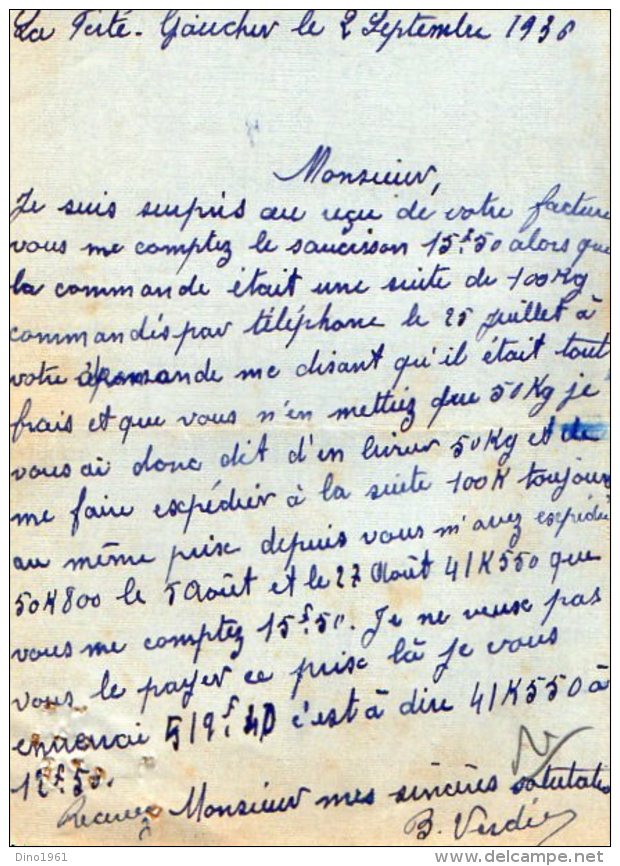 La Ferté-Gaucher le 2 Septembre 1936
Monsieur,
Je suis surpris au reçu de votre facture
vous me comptez le saucisson 15f.50 alors que
la commande était une suite de 100Kg
commandés par téléphone le 25 Juillet à
votre demande me disant qu'il était tout
frais et que vous n'en mettiez que 50Kg je
vous ai donc dit d'en livrer 50Kg et de
me faire expédier à la suite 100K toujours
au même prix depuis vous m'avez expédié
50K800 le 5 Août et le 27 Août 41K550 que
vous me comptez 15f.50. Je ne veux pas
vous le payer ce prix là je vous
enverrai 519f.40 c'est à dire 41K550 à
12f.50.
Recevez Monsieur mes sincères salutatio
B. Verdier
Dino1961
delcampe.net